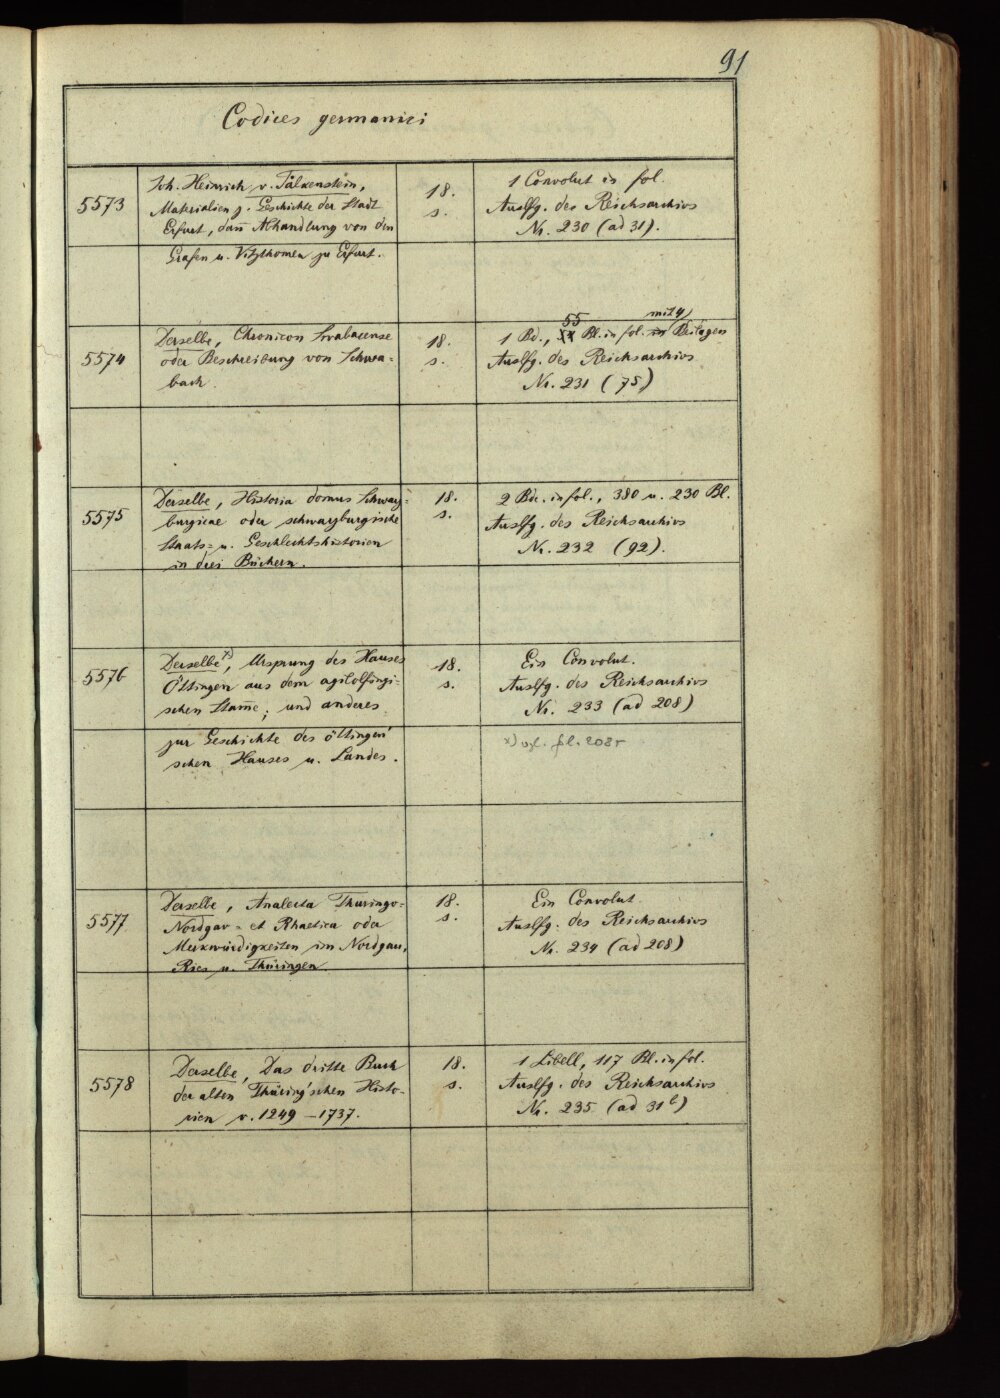 91
Codices germanici
5573
Joh. Heinrich v. Falkenstein,
Materialien z. Geschichte der Stadt
Erfurt, dañ Abhandlung von den
Grafen u. Vitzthomen zu Erfurt.
18.
s.
1 Convolut in fol.
Auslfg. des Reichsarchivs
Nr. 230 (ad 31).
5574
Derselbe, Chronicon Svabacense
oder Beschreibung von Schwa-
bach.
18.
s.
55 mit 4
1 Bd., Bl. in fol. in Beilagen
Auslfg. des Reichsarchivs
Nr. 231 (75)
5575
Derselbe, Historia domus Schwarz-
burgicae oder schwarzburgische
Staats- u. Geschlechtshistorien
in drei Büchern.
18.
s.
2 Bde. in fol., 380 u. 230 Bl.
Auslfg. des Reichsarchivs
Nr. 232 (92).
5576
Derselbe x), Ursprung des Hauses
Öttingen aus dem agilolfingi-
schen Stam̄e; und anderes
zur Geschichte des öttingen'
schen Hauses u. Landes.
18.
s.
Ein Convolut.
Auslfg. des Reichsarchivs
Nr. 233 (ad 208)
x) vgl. fol. 208r
5577
Derselbe, Analecta Thuringo-
Nordgav- et Rhaetica oder
Merkwürdigkeiten im Nordgau,
Ries u. Thüringen.
18.
s.
Ein Convolut.
Auslfg. des Reichsarchivs
Nr. 234 (ad 208)
5578
Derselbe, Das dritte Buch
der alten Thüring'schen Histo-
rien v. 1249 – 1737.
18.
s.
1 Libell, 117 Bl. in fol.
Auslfg. des Reichsarchivs
Nr. 235 (ad 31b)